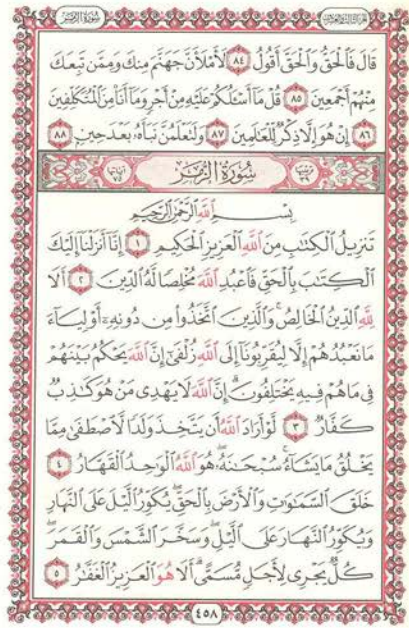 سُورَةُ الزُّمَرِ
الجزء الثالث والعشرون
قَالَ فَٱلْحَقُّ وَٱلْحَقَّ أَقُولُ ٨٤ لَأَمْلَأَنَّ جَهَنَّمَ مِنكَ وَمِمَّن تَبِعَكَ
مِنْهُمْ أَجْمَعِينَ ٨٥ قُلْ مَآ أَسْـَٔلُكُمْ عَلَيْهِ مِنْ أَجْرٍ وَمَآ أَنَا۠ مِنَ ٱلْمُتَكَلِّفِينَ
٨٦ إِنْ هُوَ إِلَّا ذِكْرٌ لِّلْعَـٰلَمِينَ ٨٧ وَلَتَعْلَمُنَّ نَبَأَهُۥ بَعْدَ حِينٍۭ ٨٨
ترتيبها ٣٩ سُورَةُ الزُّمَرِ آياتها ٧٥
بِسْمِ ٱللَّهِ ٱلرَّحْمَـٰنِ ٱلرَّحِيمِ
تَنزِيلُ ٱلْكِتَـٰبِ مِنَ ٱللَّهِ ٱلْعَزِيزِ ٱلْحَكِيمِ ١ إِنَّآ أَنزَلْنَآ إِلَيْكَ
ٱلْكِتَـٰبَ بِٱلْحَقِّ فَٱعْبُدِ ٱللَّهَ مُخْلِصًا لَّهُ ٱلدِّينَ ٢ أَلَا
لِلَّهِ ٱلدِّينُ ٱلْخَالِصُ ۚ وَٱلَّذِينَ ٱتَّخَذُوا۟ مِن دُونِهِۦٓ أَوْلِيَآءَ
مَا نَعْبُدُهُمْ إِلَّا لِيُقَرِّبُونَآ إِلَى ٱللَّهِ زُلْفَىٰٓ إِنَّ ٱللَّهَ يَحْكُمُ بَيْنَهُمْ
فِى مَا هُمْ فِيهِ يَخْتَلِفُونَ ۗ إِنَّ ٱللَّهَ لَا يَهْدِى مَنْ هُوَ كَـٰذِبٌ
كَفَّارٌ ٣ لَّوْ أَرَادَ ٱللَّهُ أَن يَتَّخِذَ وَلَدًا لَّٱصْطَفَىٰ مِمَّا
يَخْلُقُ مَا يَشَآءُ ۚ سُبْحَـٰنَهُۥ ۖ هُوَ ٱللَّهُ ٱلْوَٰحِدُ ٱلْقَهَّارُ ٤
خَلَقَ ٱلسَّمَـٰوَٰتِ وَٱلْأَرْضَ بِٱلْحَقِّ ۖ يُكَوِّرُ ٱلَّيْلَ عَلَى ٱلنَّهَارِ
وَيُكَوِّرُ ٱلنَّهَارَ عَلَى ٱلَّيْلِ ۖ وَسَخَّرَ ٱلشَّمْسَ وَٱلْقَمَرَ ۖ
كُلٌّ يَجْرِى لِأَجَلٍ مُّسَمًّى ۗ أَلَا هُوَ ٱلْعَزِيزُ ٱلْغَفَّـٰرُ ٥
٤٥٨